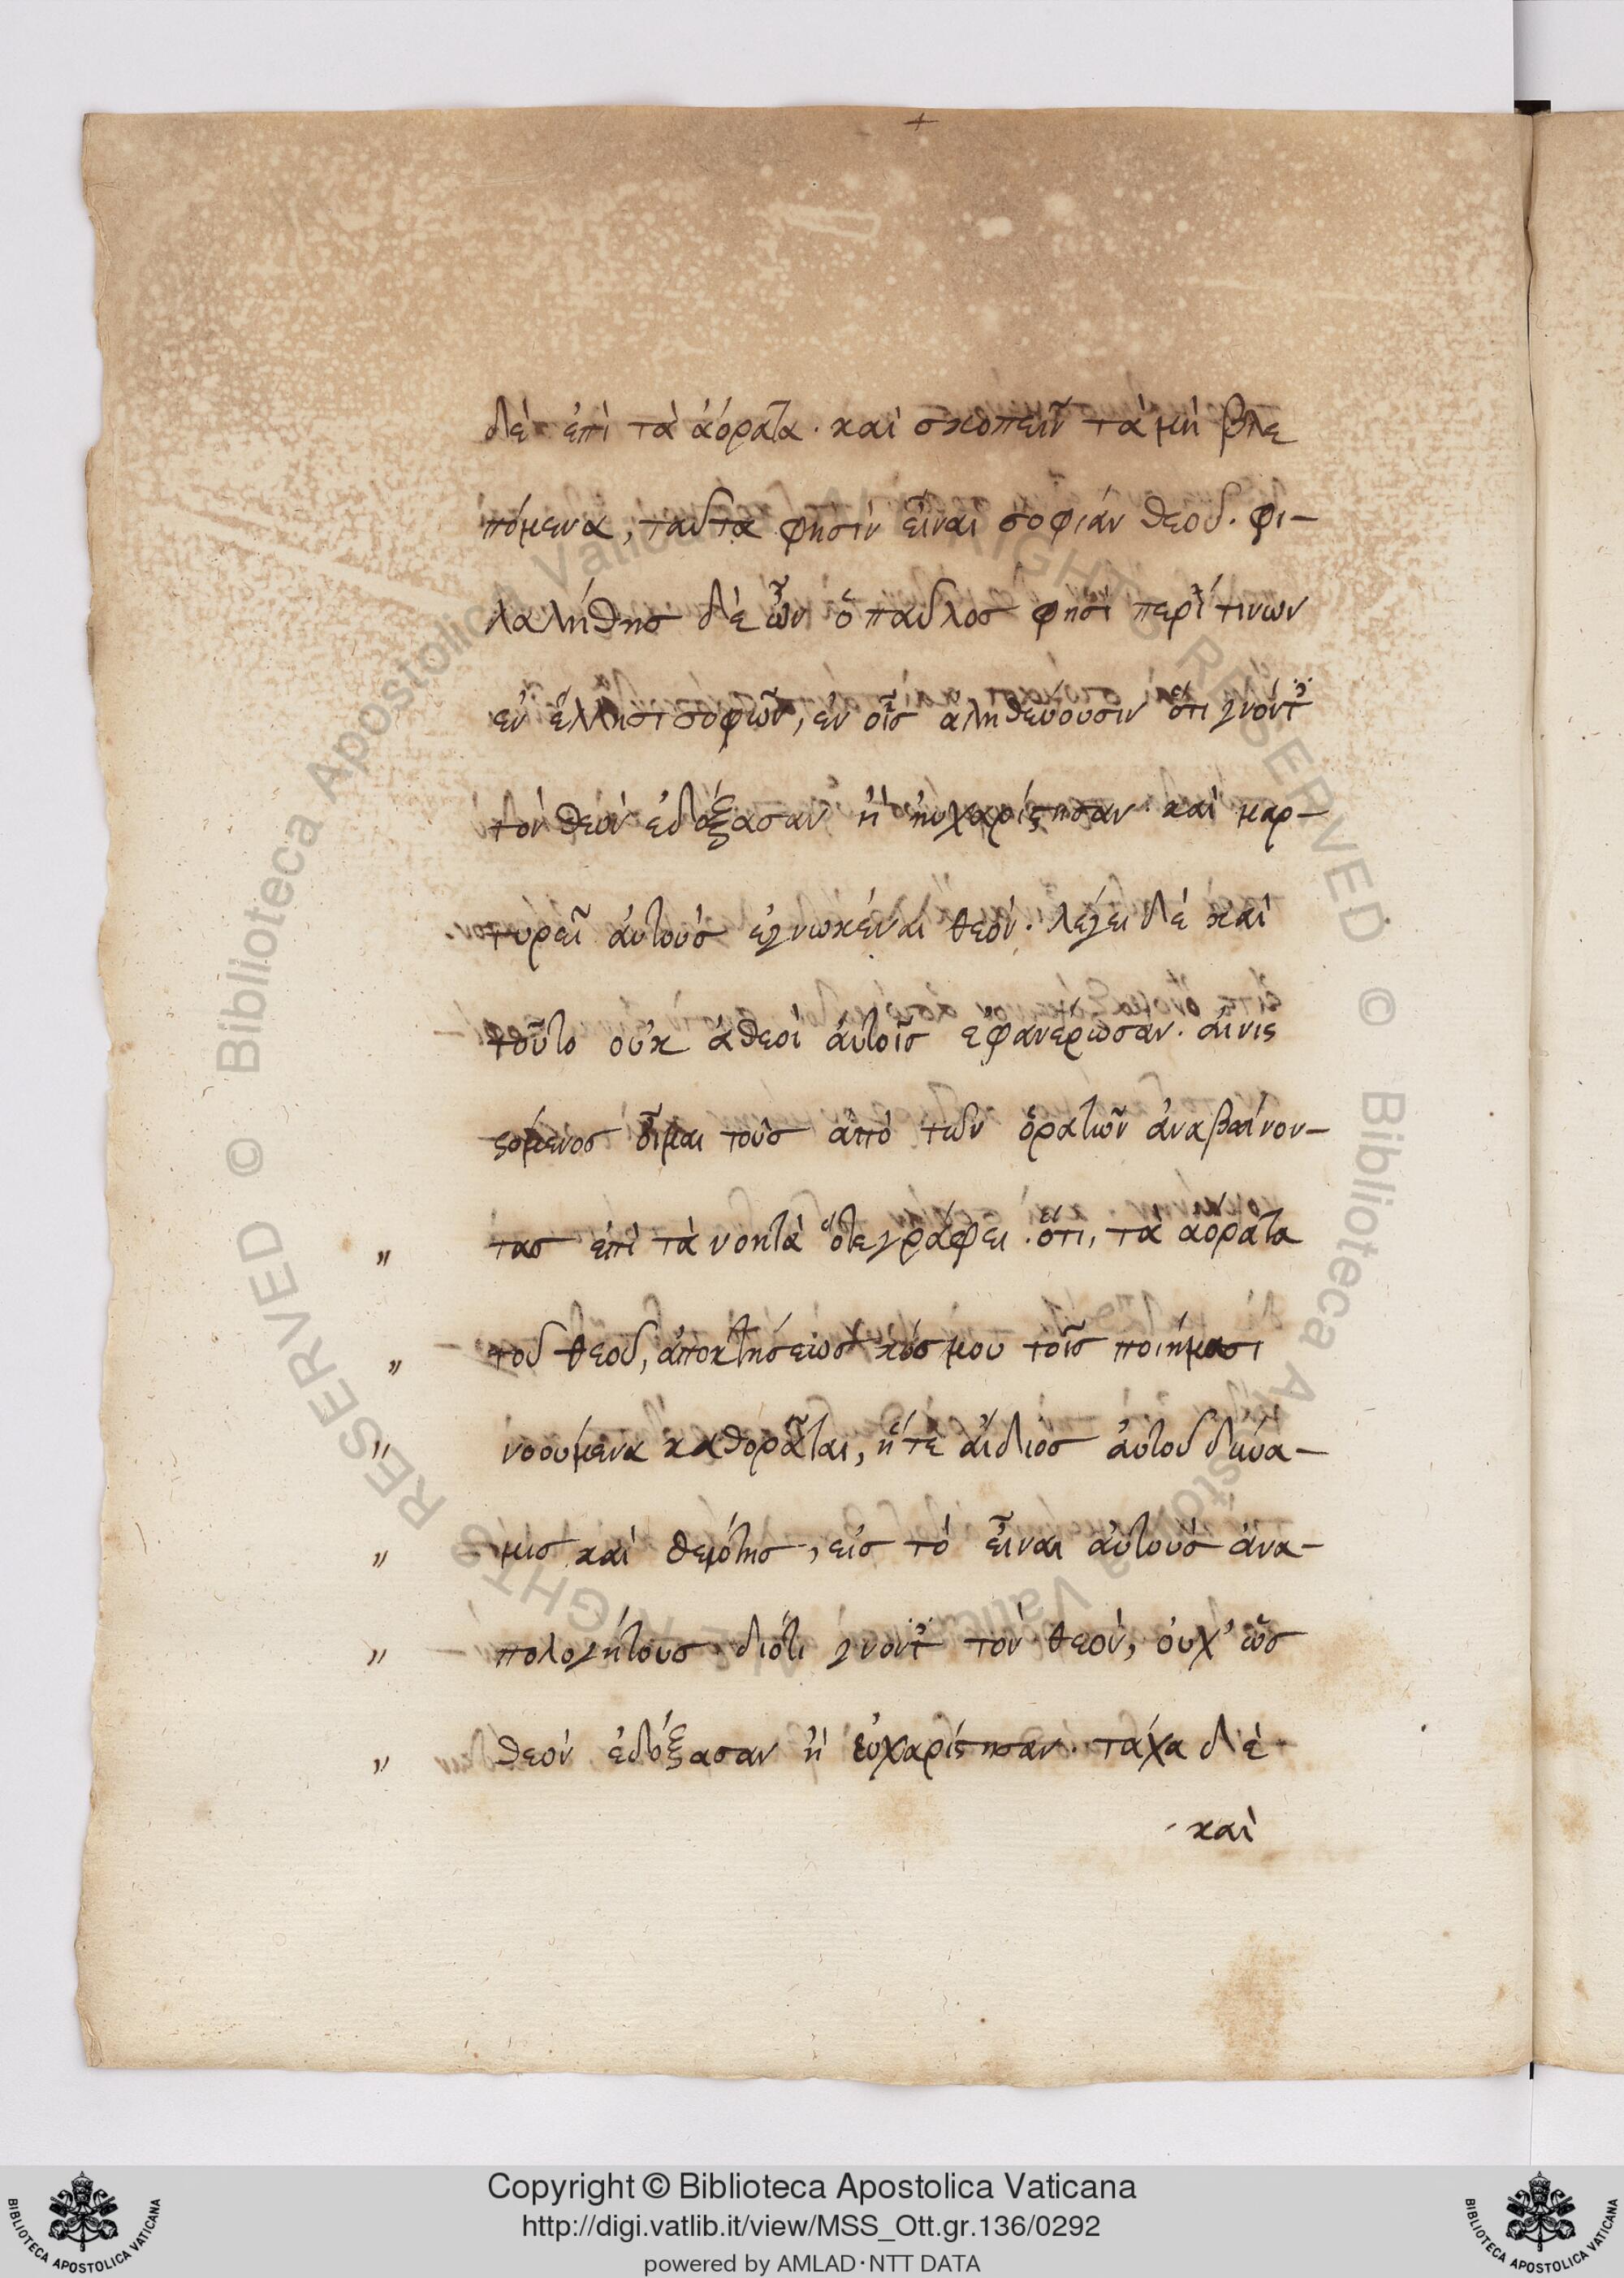 δὲ ἐπὶ τὰ ἀόρατα. καὶ σκοπεῖν τὰ μὴ βλε
πόμενα, ταῦτα φησὶν εἶναι σοφίαν θεοῦ. φι-
λαλήθης δὲ ὢν ὁ παῦλος φησὶ περί τινων
ἐν ἕλλησι σοφῶν, ἐν οἷς ἀληθεύουσιν ὅτι γνόντ
τὸν θεὸν ἐδόξασαν ἢ ηὐχαρίστησαν. καὶ μαρ-
τυρεῖ αὐτοὺς ἐγνωκέναι θεόν. λέγει δὲ καὶ
τοῦτο οὐκ ἀθεοὶ αὐτοῖς ἐφανέρωσαν. αἰνις
σόμενος οἶμαι τοὺς ἀπὸ τῶν ὁρατῶν ἀναβαίνον-
" τας ἐπὶ τὰ νοητὰ ὅτε γράφει. ὅτι, τὰ αόρατα
" τοῦ θεοῦ, ἀπο κτήσεως κόσμου τοῖς ποιήμασι
" νοούμενα καθορᾶται, ἥτε ἀΐδιος αὐτοῦ δύνα-
" μις καὶ θειότης, εἰς τὸ εἶναι αὐτοὺς ἀνα-
" πολογήτους. διότι γνόντ τὸν θεόν, οὐχ' ὡς
" θεὸν ἐδόξασαν ἢ εὐχαρίστησαν. τάχα δὲ
καὶ
Copyright © Biblioteca Apostolica Vaticana
http://digi.vatlib.it/view/MSS_Ott.gr.136/0292
powered by AMLAD·NTT DATA
BIBLIOTECA APOSTOLICA VATICANA
BIBLIOTECA APOSTOLICA VATICANA
© Biblioteca Apostolica Vaticana RIGHTS RESERVED
© Biblioteca Apostolica Vaticana RIGHTS RESERVED